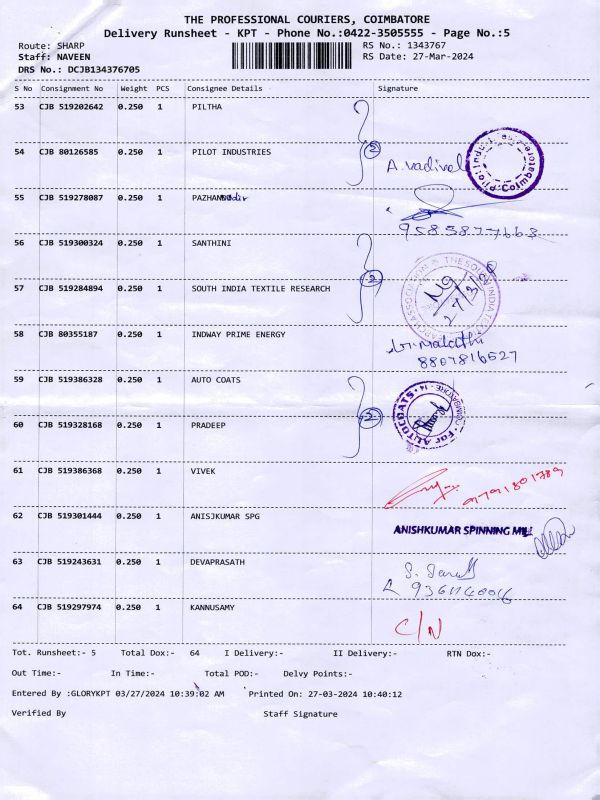 THE PROFESSIONAL COURIERS, COIMBATORE
Delivery Runsheet - KPT - Phone No.:0422-3505555 - Page No.:5
Route: SHARP RS No.: 1343767
Staff: NAVEEN RS Date: 27-Mar-2024
DRS No.: DCJB134376705
S No Consignment No Weight PCS Consignee Details Signature
53 CJB 519202642 0.250 1 PILTHA
54 CJB 80126585 0.250 1 PILOT INDUSTRIES 2 A. Vadivel Pilot Industries Coimbatore
55 CJB 519278087 0.250 1 9585877663
56 CJB 519300324 0.250 1 SANTHINI
57 CJB 519284894 0.250 1 SOUTH INDIA TEXTILE RESEARCH 2 27/3/24
58 CJB 80355187 0.250 1 INDWAY PRIME ENERGY Malathi 8807816527
59 CJB 519386328 0.250 1 AUTO COATS 2 For AUTOCOATS
60 CJB 519328168 0.250 1 PRADEEP
61 CJB 519386368 0.250 1 VIVEK 9791801789
62 CJB 519301444 0.250 1 ANISJKUMAR SPG ANISHKUMAR SPINNING MILL
63 CJB 519243631 0.250 1 DEVAPRASATH
64 CJB 519297974 0.250 1 KANNUSAMY C/N
Tot. Runsheet:- 5 Total Dox:- 64 I Delivery:- II Delivery:- RTN Dox:-
Out Time:- In Time:- Total POD:- Delvy Points:-
Entered By :GLORYKPT 03/27/2024 10:39:02 AM Printed On: 27-03-2024 10:40:12
Verified By Staff Signature